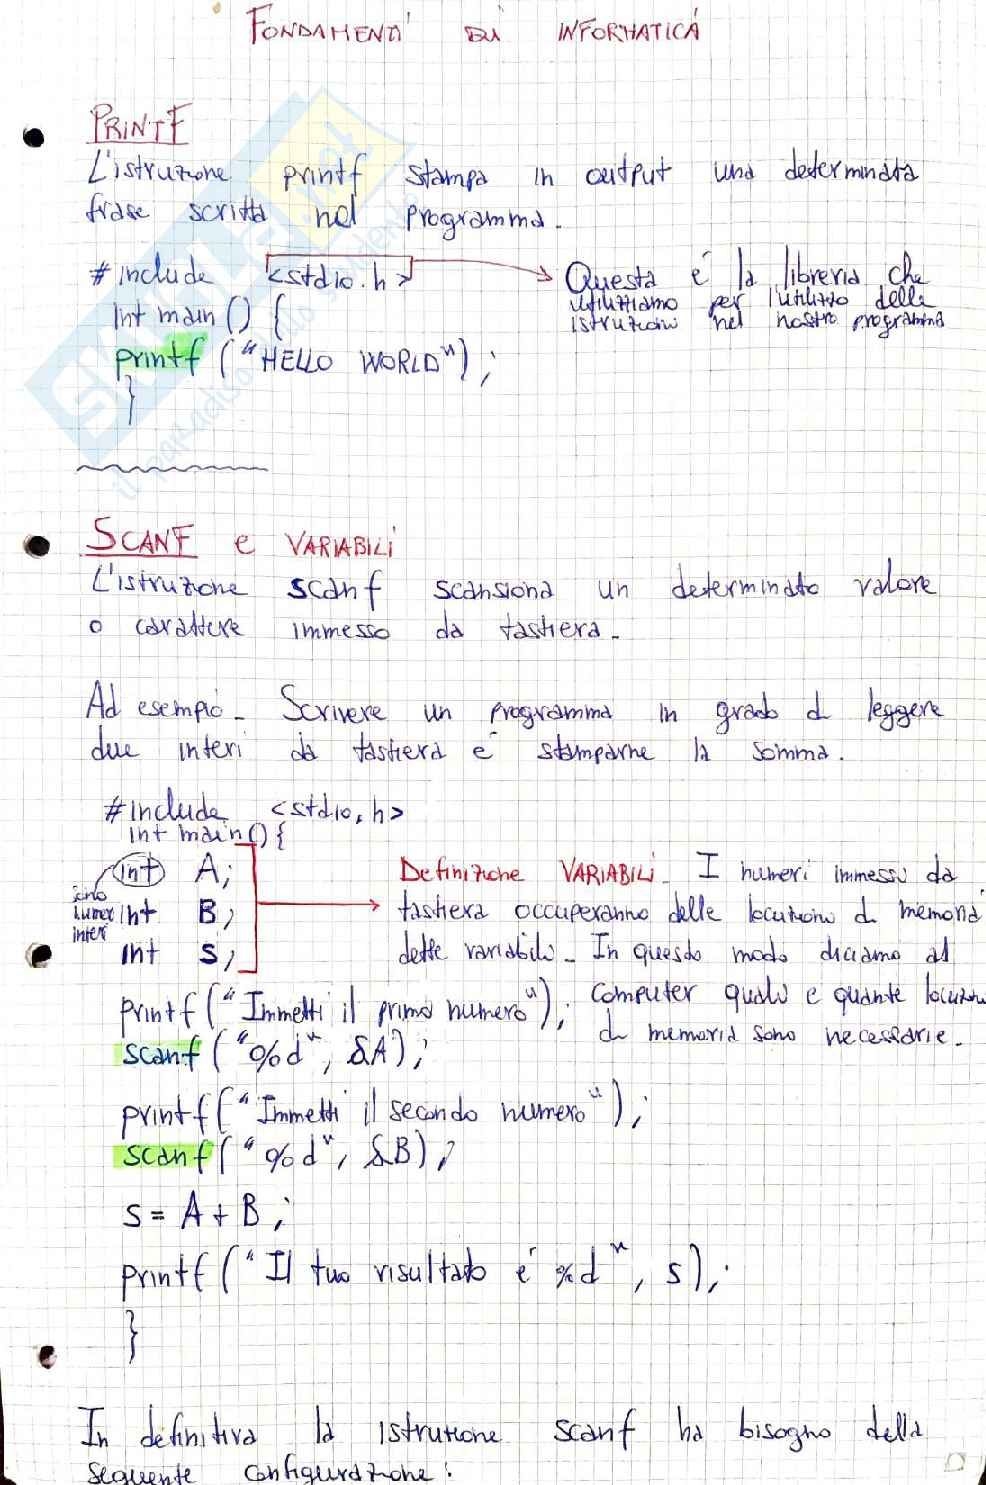 FONDAMENTI DI INFORMATICA
PRINTF
L'istruzione printf stampa in output una determinata
frase scritta nel programma.
#include <stdio.h> → Questa è la libreria che
utilizziamo per l'utilizzo delle
istruzioni nel nostro programma
int main() {
printf ("HELLO WORLD");
}
SCANF e VARIABILI
L'istruzione scanf scansiona un determinato valore
o carattere immesso da tastiera.
Ad esempio. Scrivere un programma in grado di leggere
due interi da tastiera e stamparne la somma.
#include <stdio.h>
int main(){
int A;
int B;
int S;
sono
numeri
interi
Definizione VARIABILI. I numeri immessi da
tastiera occuperanno delle locazioni di memoria
dette variabili. In questo modo diciamo al
computer quali e quante locazioni
di memoria sono necessarie.
printf("Immetti il primo numero");
scanf("%d", &A);
printf("Immetti il secondo numero");
scanf("%d", &B);
S = A + B;
printf("Il tuo risultato è %d", s);
}
In definitiva la istruzione scanf ha bisogno della
seguente configurazione:
SKUOLA.net
il paradiso dello studente